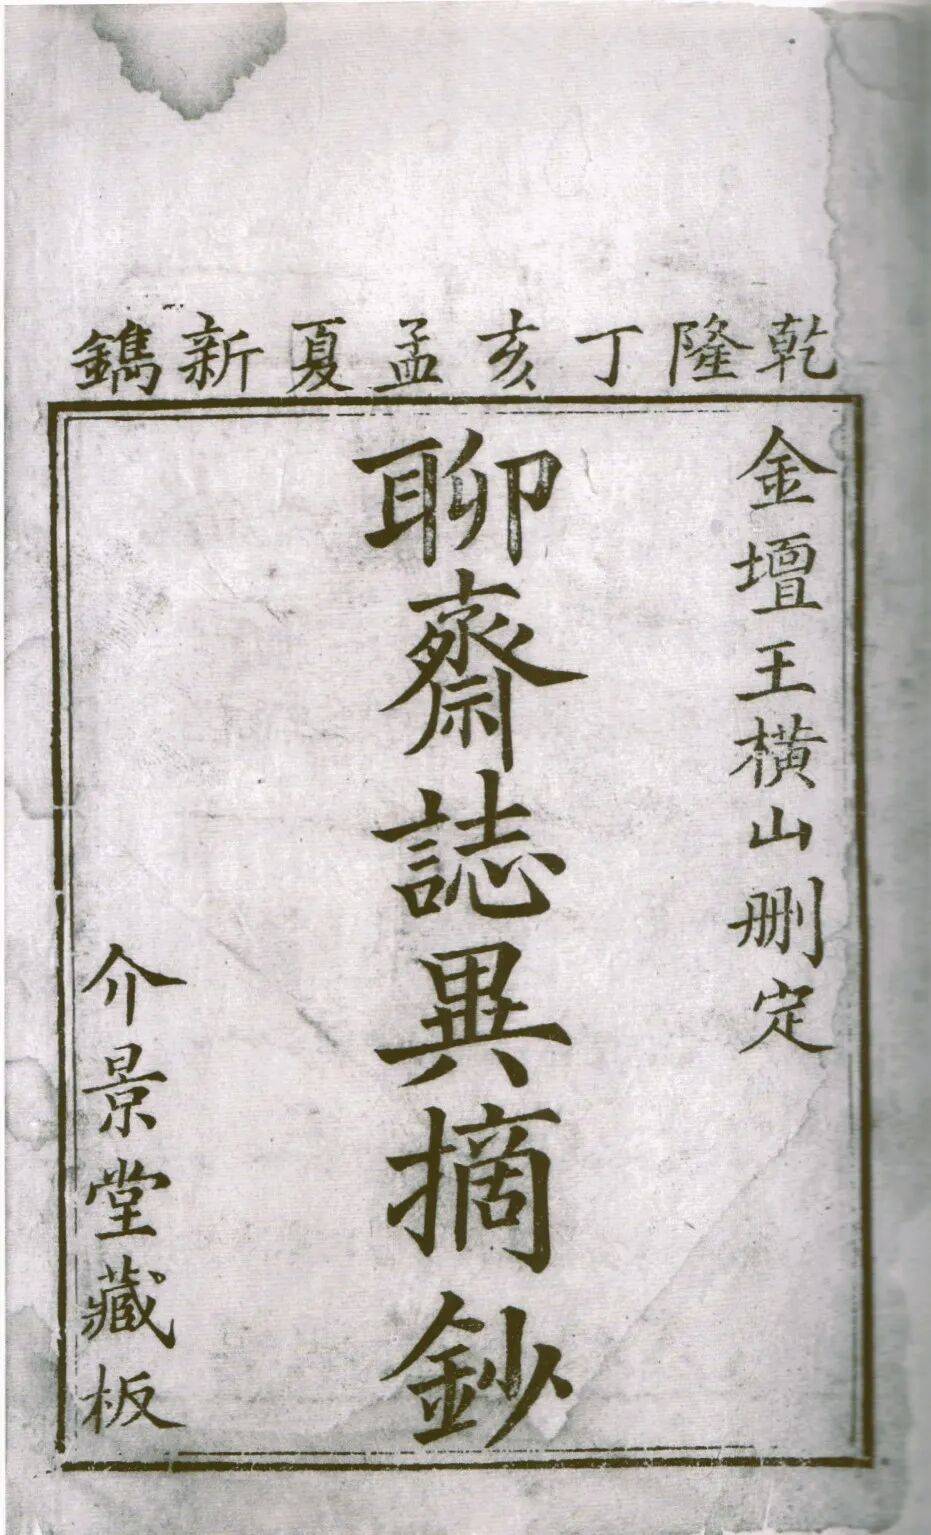 乾隆丁亥孟夏新鐫
金壇王橫山刪定
聊齋誌異摘鈔
介景堂藏板